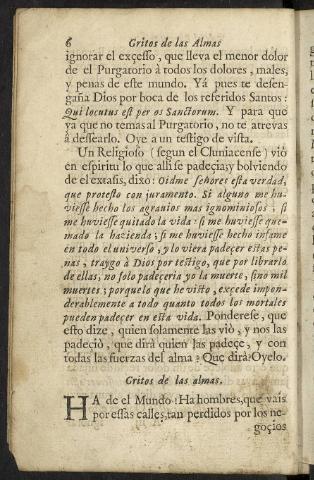 6 Gritos de las Almas
ignorar el excesso, que lleva el menor dolor
de el Purgatorio à todos los dolores, males,
y penas de este mundo. Yà pues te desen-
gaña Dios por boca de los referidos Santos:
Qui locutus est per os Sanctorum. Y para que
ya que no temas al Purgatorio, no te atrevas
à dessearlo. Oye a un testigo de vista.
Un Religioso (segun el Cluniacense) viò
en espiritu lo que alli se padecia; y bolviendo
de el extasis, dixo: Oidme señores esta verdad,
que protesto con juramento. Si alguno me hu-
viesse hecho los agravios mas ignominiosos; si
me huviesse quitado la vida: si me huviesse que-
mado la hazienda; si me huviesse hecho infame
en todo el universo, y lo viera padecer estas pe-
nas, traygo à Dios por testigo, que por librarlo
de ellas, no solo padeceria yo la muerte, sino mil
muertes; porque lo que he visto, excede impon-
derablemente a todo quanto todos los mortales
pueden padecer en esta vida. Ponderese, que
esto dize, quien solamente las viò, y nos las
padeciò, que dirà quien las padeçe, y con
todas las fuerzas del alma? Que dirà? Oyelo.
Gritos de las almas.
HA de el Mundo! Ha hombres, que vais
por essas calles, tan perdidos por los ne-
goçios